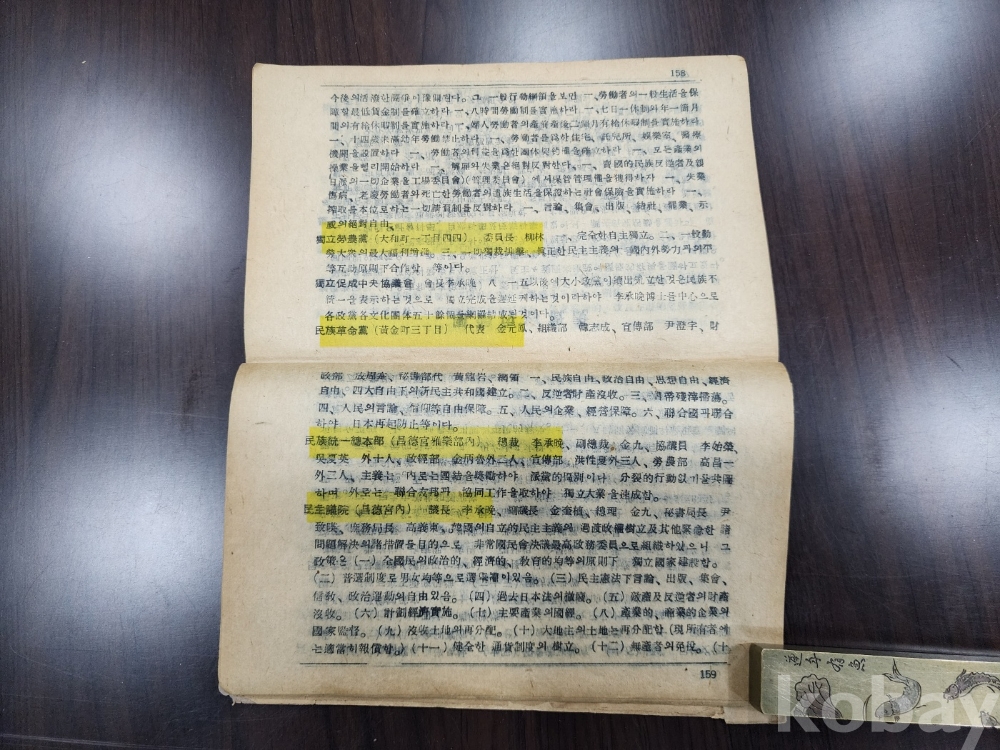 158
今後의活潑한展開이豫期된다。그 一般行動綱領을보면 一、勞働者의一般生活을保
障할最低賃金制를確立하라 一、八時間勞働制를實施하라 一、七日一休制와年一個月
間의有給休暇制를實施하라 一、婦人勞働者의產前產後二個月有給休暇制를實施하라
一、十四歲未滿幼年勞働禁止하라 一、勞働者를爲한住宅、託兒所、娛樂室、醫療
機關을設置하라 一、勞働者의利益을爲한團体契約權을確立하라 一、모든產業의
操業을빨리開始하라 一、解雇와失業은絕對反對한다。一、賣國的民族反逆者及親
日派의一切企業을工場委員會)(管理委員會)에서保管管理權을獲得하자 一、失業
傷病、老廢勞働者와死亡한勞働者의遺族生活을保證하는社會保險을實施하라 一、
搾取를本位로하는一切請負制를反對하라 一、言論、集會、出版、結社、罷業、示
威의絕對自由、
獨立勞農黨(大和町一丁目四四) 委員長 柳林 一、完全한自主獨立。二、一較動
勞大衆의最大福利 三、一切獨裁排擊、眞正한民主主義의 國內外勢力과의平
等互助原則下合作할 等이다。
獨立促成中央協議會 會長李承晩、八·一五以後에大小政黨이續出亂立한것은民族不
統一을表示하는것으로 獨立完成을遲延케하는것이라하야 李承晩博士를中心으로
各政黨各文化團体五十餘個를網羅結成된것이다。
民族革命黨(黃金町三丁目) 代表 金元鳳、組織部 韓志成、宣傳部 尹澄宇、財
政部 成 、秘書部代 黃龍岩、綱領 一、民族自由、政治自由、思想自由、經濟
自由、四大自由下의新民主共和國建立。二、反逆者財產沒收。三、日帝殘滓掃蕩。
四、人民의言論、信仰等自由保障。五、人民의企業、經營保障。六、聯合國과聯合
하야 日本再起防止等이다。
民族統一總本部(昌德宮雅樂部內) 總裁 李承晩、副總裁、金九、協議員 李始榮、
吳夏英 外十人、政經部 金炳魯外三人、宣傳部 洪性夏外三人、勞農部 高昌一
外二人、主義는 內로는團結을獎勵하야 派黨的區別이나 分裂的行動없기를共圖
하며 外로는 聯合友邦과 協同工作을取하야 獨立大業을速成함。
民主議院(昌德宮內) 議長 李承晩、副議長 金奎植、總理 金九、秘書局長 尹
致暎、庶務局長 高義東。韓國의自立的民主主義의 過渡政權樹立及其他緊急한 諸
問題解決의諸措置를目的으로 非常國民會決議最高政務委員으로組織하였으니 그
政策은(一)全國民의政治的、經濟的、敎育的均等의原則下 獨立國家建設함。
(二)普選制度로男女均等으로選擧權이있음。(三)民主憲法下言論、出版、集會、
信敎、政治運動의自由있음。(四)過去日本法의撤廢。(五)敵產及反逆者의財產
沒收。(六)計劃經濟實施。(七)主要產業의國經。(八)產業的、商業的企業의
國家監督。(九)沒收土地의再分配。(十)大地主의土地는再分配함(現所有者에
는適當히報償함)。(十一)健全한 通貨制度의樹立。(十二)無產者의免稅。(十
159
連年有魚
kobay